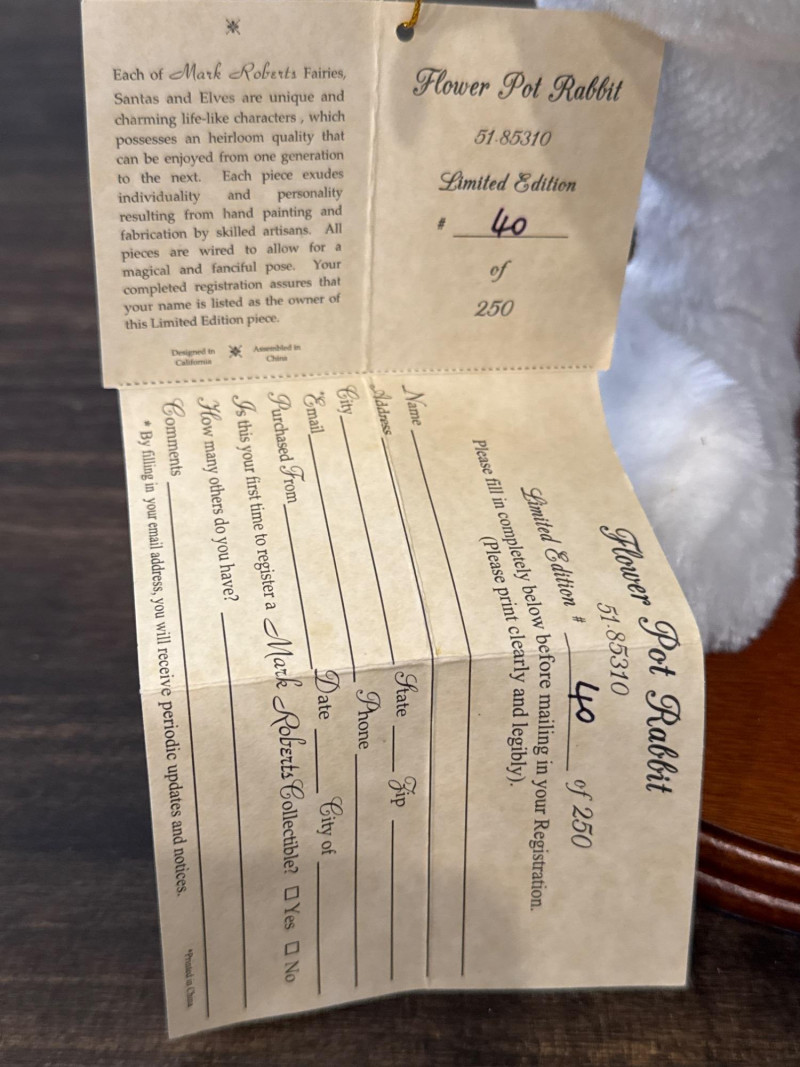 Each of Mark Roberts Fairies,
Santas and Elves are unique and
charming life-like characters , which
possesses an heirloom quality that
can be enjoyed from one generation
to the next. Each piece exudes
individuality and personality
resulting from hand painting and
fabrication by skilled artisans. All
pieces are wired to allow for a
magical and fanciful pose. Your
completed registration assures that
your name is listed as the owner of
this Limited Edition piece.
Designed in
California
Assembled in
China
Flower Pot Rabbit
51-85310
Limited Edition
# 40
of
250
Flower Pot Rabbit
51-85310
Limited Edition # 40 of 250
Please fill in completely below before mailing in your Registration.
(Please print clearly and legibly).
Name
Address
City State Zip
*Email Phone
Purchased From Date City of
Is this your first time to register a Mark Roberts Collectible? □ Yes □ No
How many others do you have?
Comments
* By filling in your email address, you will receive periodic updates and notices.
*Printed in China